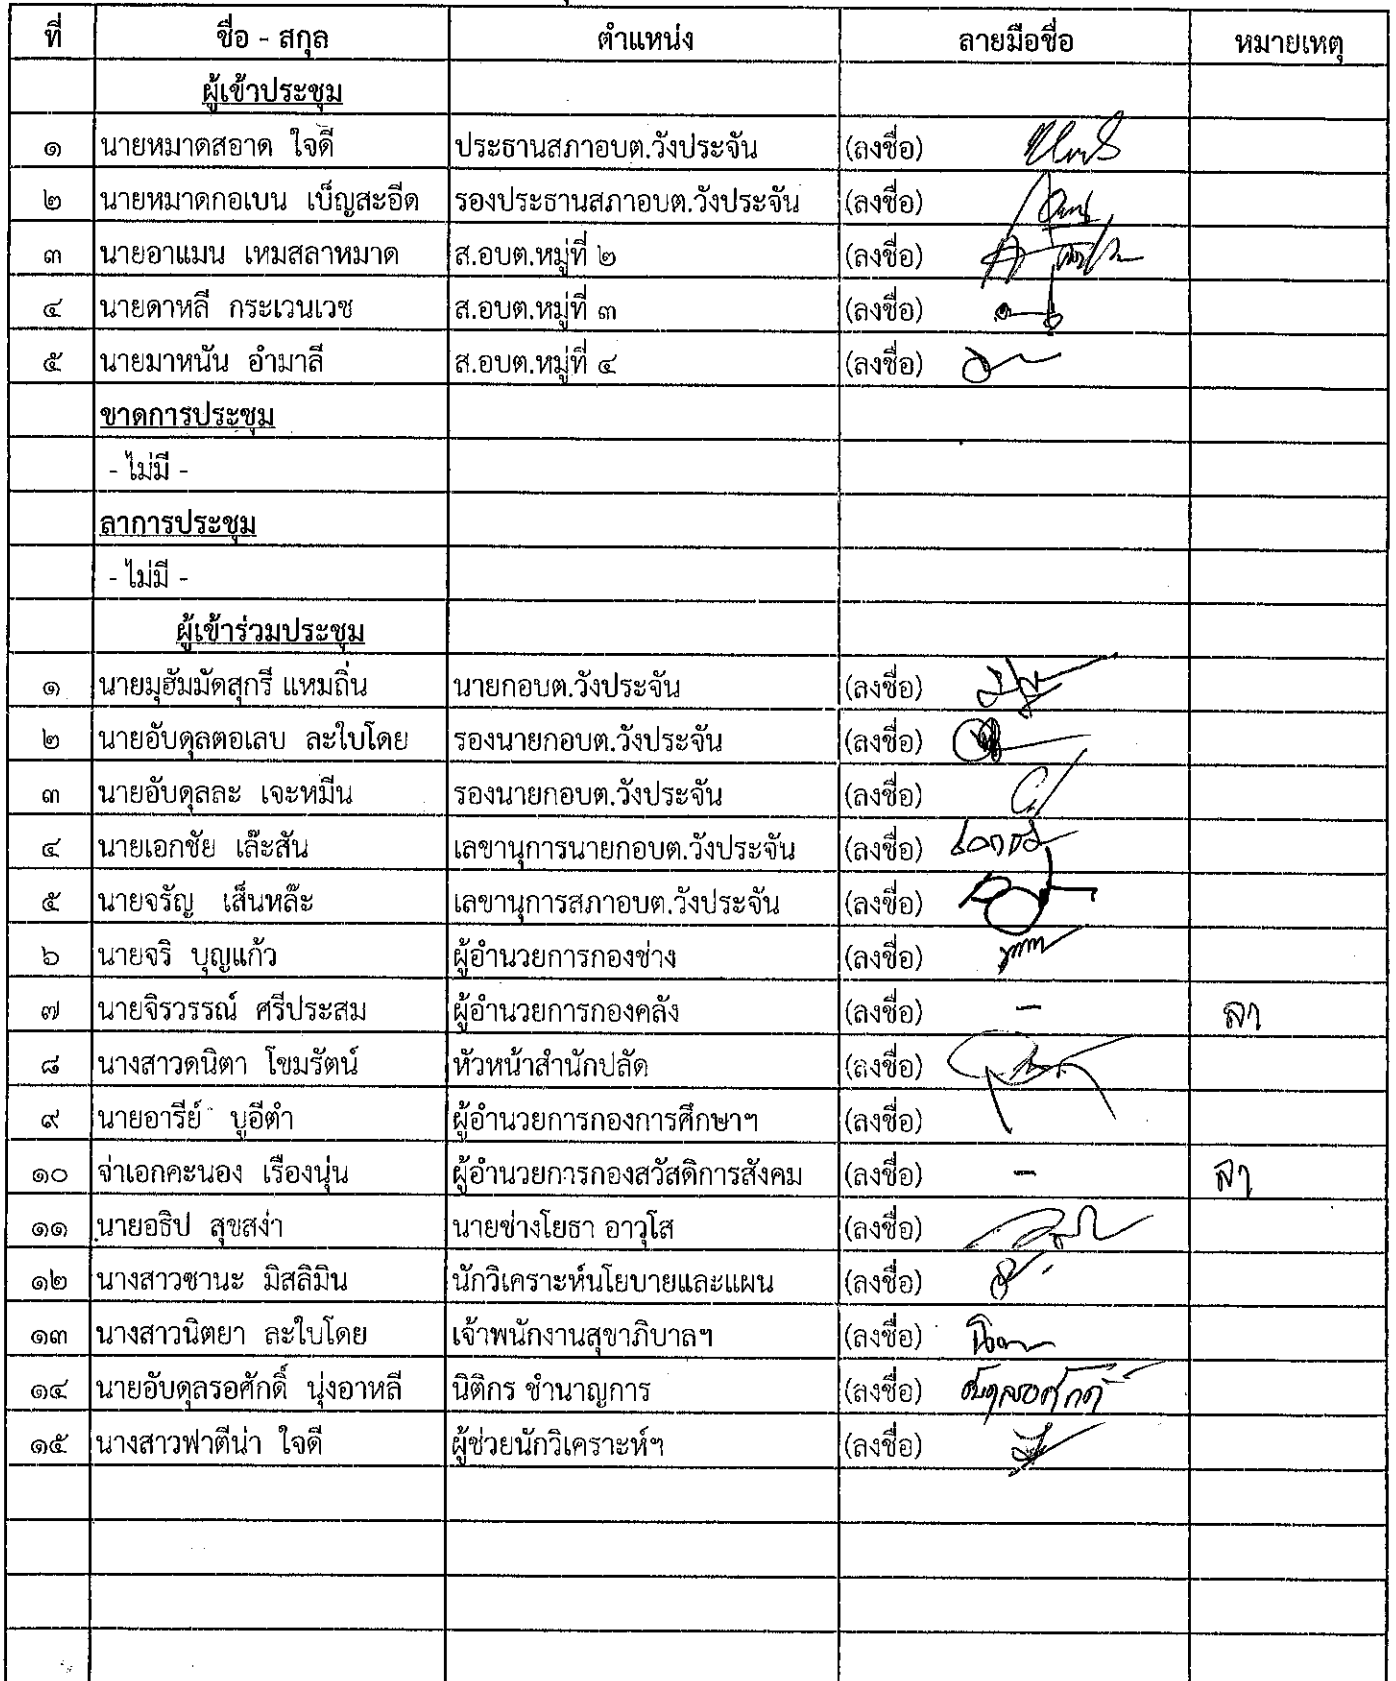 ที่ ชื่อ - สกุล ตำแหน่ง ลายมือชื่อ หมายเหตุ
ผู้เข้าประชุม
๑ นายหมาดสอาด ใจดี ประธานสภาอบต.วังประจัน (ลงชื่อ)
๒ นายหมาดกอเบน เบ็ญสะอีด รองประธานสภาอบต.วังประจัน (ลงชื่อ)
๓ นายอาแมน เหมสลาหมาด ส.อบต.หมู่ที่ ๒ (ลงชื่อ)
๔ นายดาหลี กระเวนเวช ส.อบต.หมู่ที่ ๓ (ลงชื่อ)
๕ นายมาหนัน อำมาลี ส.อบต.หมู่ที่ ๔ (ลงชื่อ)
ขาดการประชุม
- ไม่มี -
ลาการประชุม
- ไม่มี -
ผู้เข้าร่วมประชุม
๑ นายมุฮัมมัดสุกรี แหมถิ่น นายกอบต.วังประจัน (ลงชื่อ)
๒ นายอับดุลตอเลบ ละใบโดย รองนายกอบต.วังประจัน (ลงชื่อ)
๓ นายอับดุลละ เจะหมีน รองนายกอบต.วังประจัน (ลงชื่อ)
๔ นายเอกชัย เล๊ะสัน เลขานุการนายกอบต.วังประจัน (ลงชื่อ) เอกชัย
๕ นายจรัญ เส็นหล๊ะ เลขานุการสภาอบต.วังประจัน (ลงชื่อ)
๖ นายจริ บุญแก้ว ผู้อำนวยการกองช่าง (ลงชื่อ)
๗ นายจิรวรรณ์ ศรีประสม ผู้อำนวยการกองคลัง (ลงชื่อ) - ลา
๘ นางสาวดนิตา โชมรัตน์ หัวหน้าสำนักปลัด (ลงชื่อ)
๙ นายอารีย์ บูอีตำ ผู้อำนวยการกองการศึกษาฯ (ลงชื่อ)
๑๐ จ่าเอกคะนอง เรืองนุ่น ผู้อำนวยการกองสวัสดิการสังคม (ลงชื่อ) - ลา
๑๑ นายอธิป สุขสง่า นายช่างโยธา อาวุโส (ลงชื่อ)
๑๒ นางสาวซานะ มิสลิมิน นักวิเคราะห์นโยบายและแผน (ลงชื่อ)
๑๓ นางสาวนิตยา ละใบโดย เจ้าพนักงานสุขาภิบาลฯ (ลงชื่อ)
๑๔ นายอับดุลรอศักดิ์ นุ่งอาหลี นิติกร ชำนาญการ (ลงชื่อ) อับดุลรอศักดิ์
๑๕ นางสาวฟาตีน่า ใจดี ผู้ช่วยนักวิเคราะห์ฯ (ลงชื่อ)